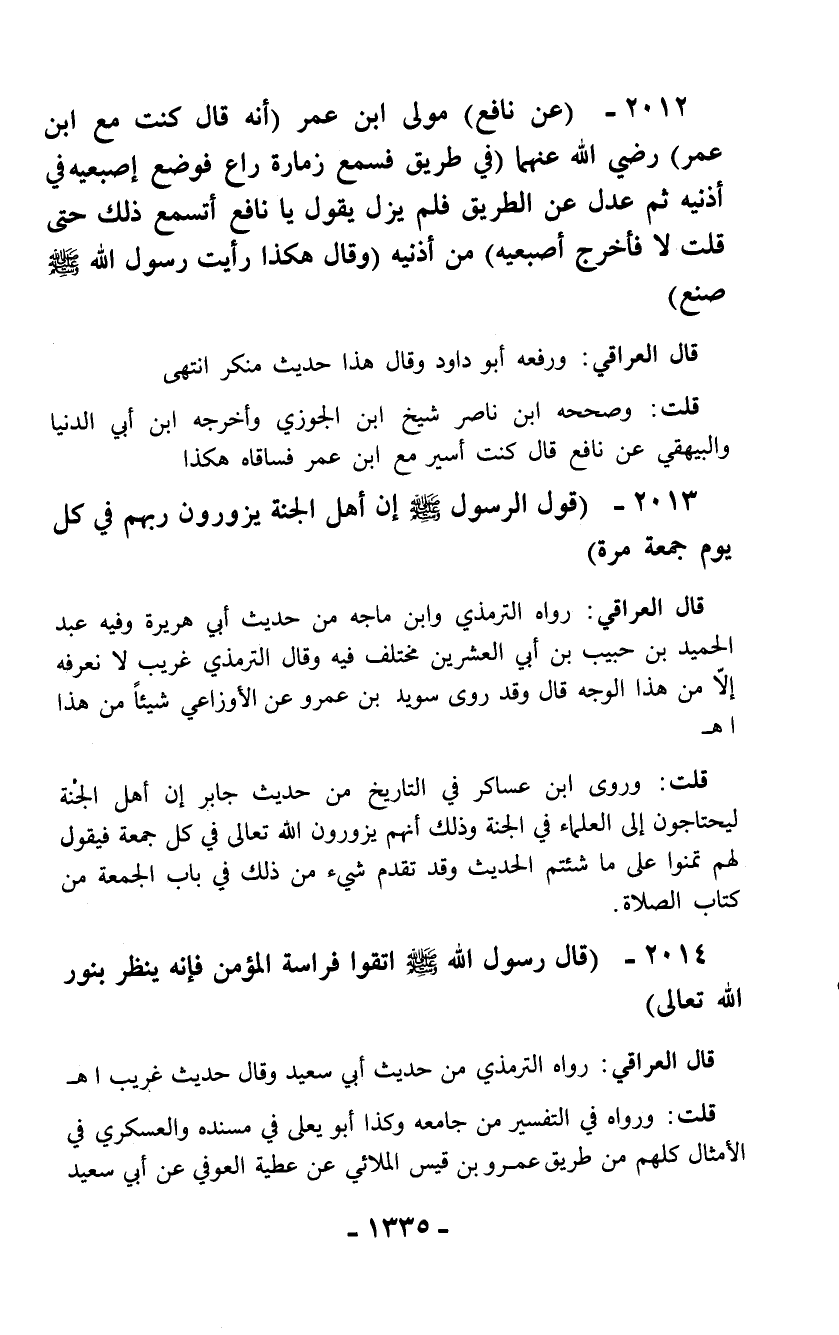 ٢٠١٢ ـ (عن نافع) مولى ابن عمر (أنه قال كنت مع ابن
عمر) رضي الله عنهما (في طريق فسمع زمارة راع فوضع إصبعيه في
أذنيه ثم عدل عن الطريق فلم يزل يقول يا نافع أتسمع ذلك حتى
قلت لا فأخرج أصبعيه) من أذنيه (وقال هكذا رأيت رسول الله ﷺ
صنع)
قال العراقي: ورفعه أبو داود وقال هذا حديث منكر انتهى
قلت: وصححه ابن ناصر شيخ ابن الجوزي وأخرجه ابن أبي الدنيا
والبيهقي عن نافع قال كنت أسير مع ابن عمر فساقاه هكذا
٢٠١٣ ـ (قول الرسول ﷺ إن أهل الجنة يزورون ربهم في كل
يوم جمعة مرة)
قال العراقي: رواه الترمذي وابن ماجه من حديث أبي هريرة وفيه عبد
الحميد بن حبيب بن أبي العشرين مختلف فيه وقال الترمذي غريب لا نعرفه
إلّا من هذا الوجه قال وقد روى سويد بن عمرو عن الأوزاعي شيئاً من هذا
ا هـ
قلت: وروى ابن عساكر في التاريخ من حديث جابر إن أهل الجنة
ليحتاجون إلى العلماء في الجنة وذلك أنهم يزورون الله تعالى في كل جمعة فيقول
لهم تمنوا على ما شئتم الحديث وقد تقدم شيء من ذلك في باب الجمعة من
كتاب الصلاة.
٢٠١٤ ـ (قال رسول الله ﷺ اتقوا فراسة المؤمن فإنه ينظر بنور
الله تعالى)
قال العراقي: رواه الترمذي من حديث أبي سعيد وقال حديث غريب ا هـ
قلت: ورواه في التفسير من جامعه وكذا أبو يعلى في مسنده والعسكري في
الأمثال كلهم من طريق عمرو بن قيس الملائي عن عطية العوفي عن أبي سعيد
ـ ١٣٣٥ ـ